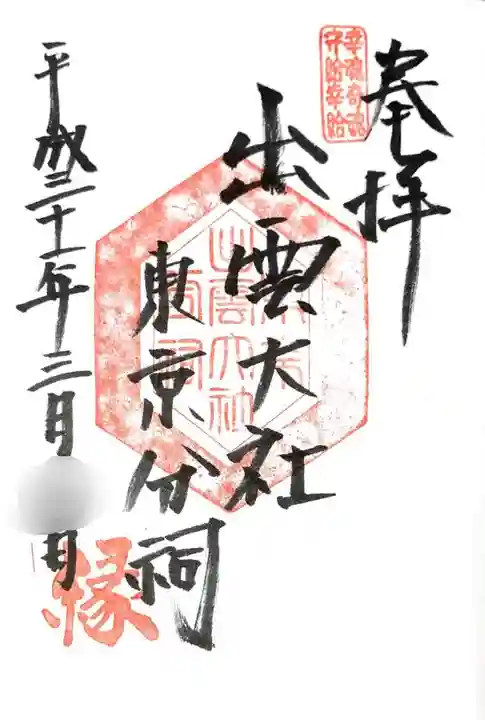 奉拝
幸魂奇魂
守給幸給
出雲大社
東京分祠
出雲大社
平成三十一年三月
日
縁